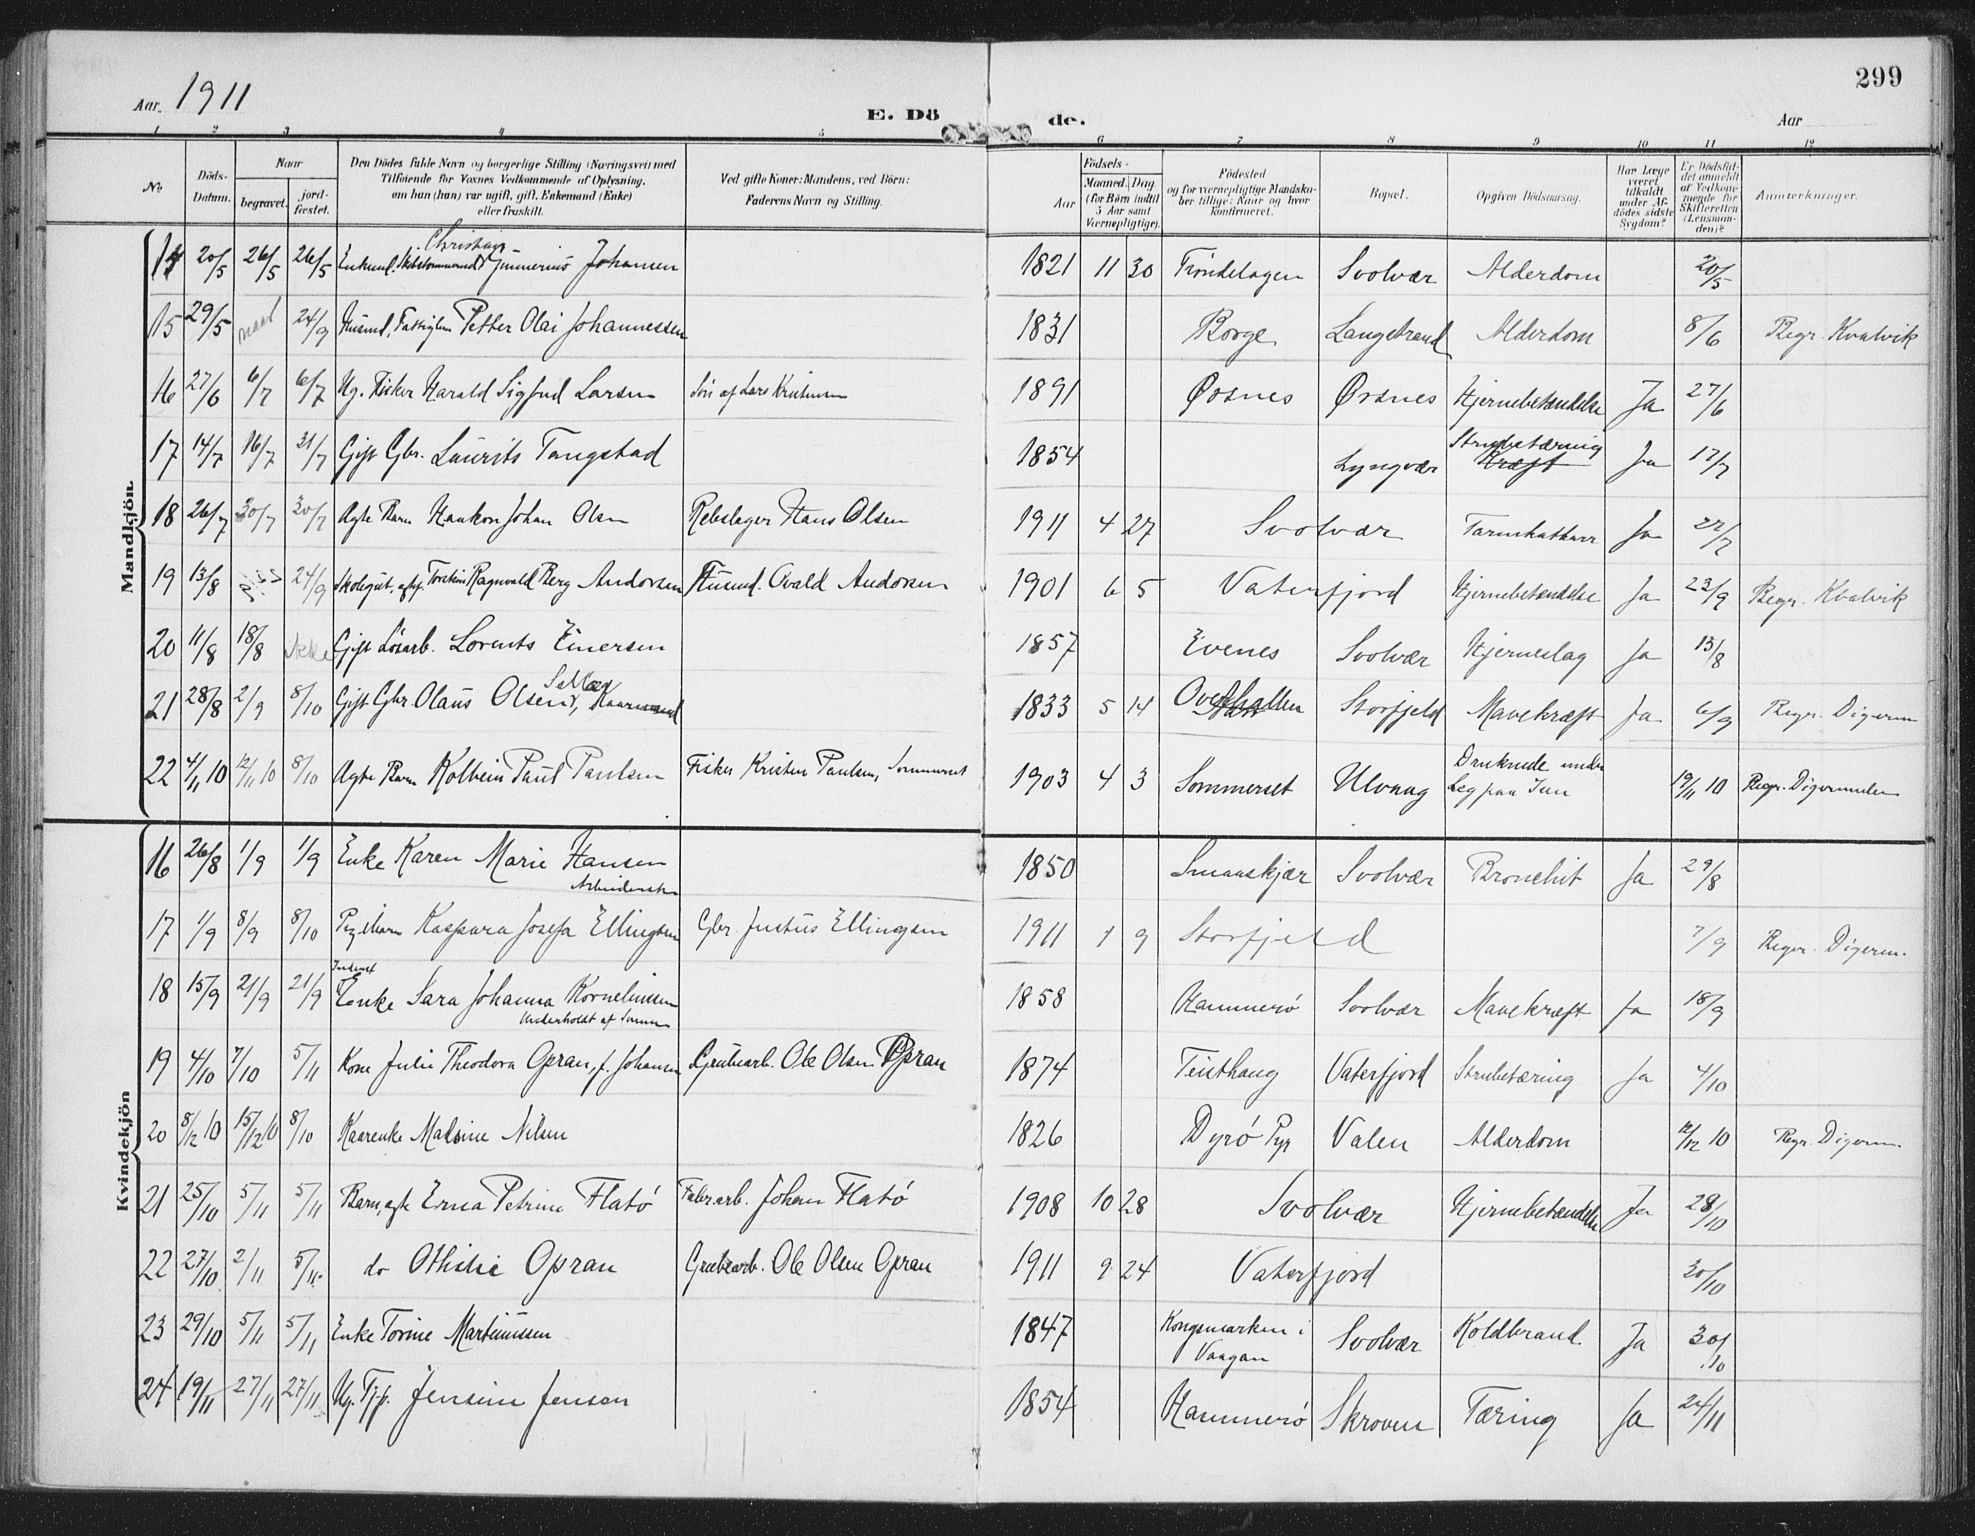 Aar 1911
E. Dö de.
Aar
299
1 2 3 4 5 6 7 8 9 10 11 12
No
Döds-Datum.
Naar
begravet.
jord-fæstet.
Den Dödes fulde Navn og borgerlige Stilling (Næringsvei) med
Tilföiende for Voxnes Vedkommende af Oplysning,
om han (hun) var ugift, gift, Enkemand (Enke)
eller fraskilt.
Ved gifte Koner: Mandens, ved Börn:
Faderens Navn og Stilling.
Födsels-
Aar
Maaned. Dag
(for Börn indtil
5 Aar samt
Værnepligtige).
Födested
og for værnepligtige Mandska-
ber tillige: Naar og hvor
konfirmeret.
Bopæl.
Opgiven Dödsaarsag.
Har Læge
været
tilkaldt
under Af-
dödes sidste
Sygdom?
Er Dödsfal-
det anmeldt
af Vedkom-
mende for
Skifteretten
(Lensman-
den)?
Anmærkninger.
Mandkjön.
14 20/5 26/5 26/5 Enkemd. Christian Gunnerius Johansen 1821 11 30 Trøndelagen Svolvær Alderdom 20/5
15 29/5 24/9 Husmd. Fattiglem Petter Olai Johannessen 1831 Borge Langstrand Alderdom 8/6 Begr. Kvalvik
16 27/6 6/7 6/7 Ug. Fisker Harald Sigfred Larsen Søn af Lars Kristensen 1891 Ørsnes Ørsnes Hjernebetændelse Ja 27/6
17 14/7 16/7 31/7 Gift Gbr. Laurits Tangstad 1854 Lyngvær Strubetæring Kræft Ja 17/7
18 26/7 30/7 30/7 Ægte Barn Haakon Johan Olsen Rebslager Hans Olsen 1911 4 27 Svolvær Tarmkatharr Ja 27/7
19 13/8 24/9 Skolegut, Torstein Ragnvald Berg Andorsen Husmd. Ovald Andorsen 1901 6 5 Vaterfjord Hjernebetændelse Ja 23/9 Begr. Kvalvik
20 11/8 18/8 ikke Gift Løsarb. Lorents Einersen 1857 Evenes Svolvær Hjerneslag Ja 13/8
21 28/8 2/9 8/10 Gift Gbr. Olaus Olsen, Kaarmand 1833 5 14 Overhallen Storfjeld Mavekræft Ja 6/9 Begr. Digerm
22 4/11 10 12/11 10 8/10 Ægte Barn Kolbein Paul Paulsen Fisker Kristen Paulsen, Sommerset 1903 4 3 Sommerset Ulvaag Druknede under Leg paa Isen 19/11 10 Begr. Digermulen
Kvindekjön
16 26/8 1/9 1/9 Enke Karen Marie Hansen 1850 Smaaskjær Svolvær Bronchit Ja 29/8
17 1/9 8/9 8/10 Pigebarn Kaspara Josefa Ellingsen Gbr. Justus Ellingsen 1911 1 9 Storfjeld 7/9 Begr. Digerm.
18 15/9 21/9 21/9 Enke Sara Johanna Korneliussen Underholdt af Sønnen 1858 Hammerø Svolvær Mavekræft Ja 18/9
19 4/10 7/10 5/11 Kone Julie Theodora Opran, f. Johansen Grubearb. Ole Olsen Opran 1874 Teisthaug Vaterfjord Strubetæring Ja 4/10
20 8/12 10 15/12 10 8/10 Kaarenke Malsine Nilsen 1826 Dyrø Pgj Valen Alderdom 12/12 10 Begr. Digerm.
21 25/10 5/11 5/11 Barn, ægte Erna Petrine Flatø Fabr.arb. Johan Flatø 1908 10 28 Svolvær Hjernebetændelse Ja 28/10
22 27/10 2/11 5/11 do Othilie Opran Grubearb. Ole Olsen Opran 1911 9 24 Vaterfjord 30/10
23 29/10 5/11 5/11 Enke Torine Martinussen 1847 Kongsmarken i Vaagan Svolvær Koldbrand Ja 30/10
24 19/11 27/11 27/11 Ug. Tjp. Jensine Jensen 1854 Hammerø Skroven Tæring Ja 24/11